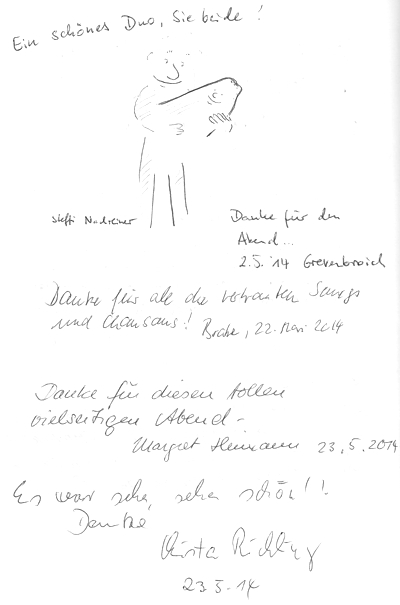 Ein schönes Duo, Sie beide!
Steffi
Danke für den
Abend...
2.5.'14 Grevenbroich
Danke für all die vertrauten Songs
und Chansons! Brake, 22. Mai 2014
Danke für diesen tollen
vielseitigen Abend -
Margret Hermann 23.5.2014
Es war sehr, sehr schön!!
Danke
Christa
23.5.14